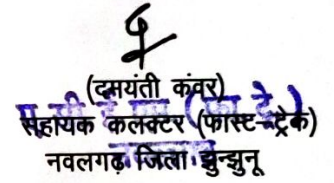 (दमयंती कंवर)
सहायक कलक्टर (फास्ट-ट्रेक)
नवलगढ़ जिला झुन्झुनू